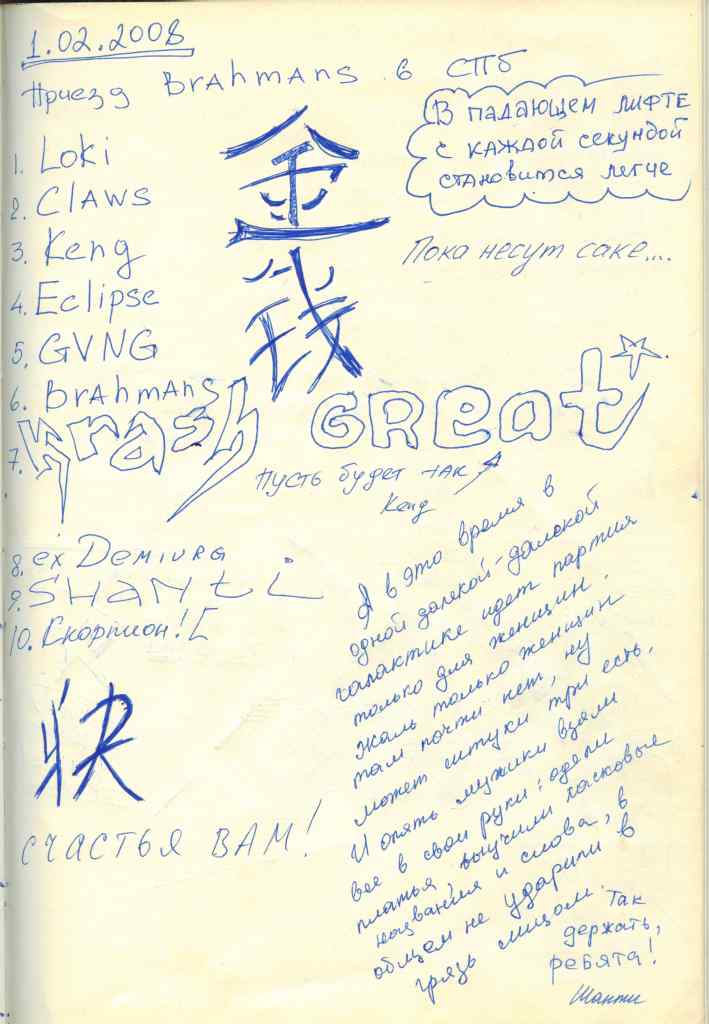 1.02.2008
Приезд BrAhmANS в СПб
В ПАДАЮЩЕМ ЛИФТЕ
С КАЖДОЙ СЕКУНДОЙ
СТАНОВИТСЯ ЛЕГЧЕ
Пока несут саке....
1. Loki
2. CLAWS
3. Keng
4. Eclipse
5. GVNG
6. BrAhmANS
7. Krash
金
钱
GReat
Пусть будет так
Keng
8. ex Demiurg
9. SHANti
10. Скорпион!
快
СЧАСТЬЯ ВАМ!
А в это время в
одной далекой-далекой
галактике идет партия
только для женщин.
Жаль только женщин
там почти нет, ну
может штуки три есть.
И опять мужики взяли
все в свои руки: одели
платья, выучили ласковые
названия и слова, в
общем не ударили в
грязь лицом. Так
держать,
ребята!
Шанти